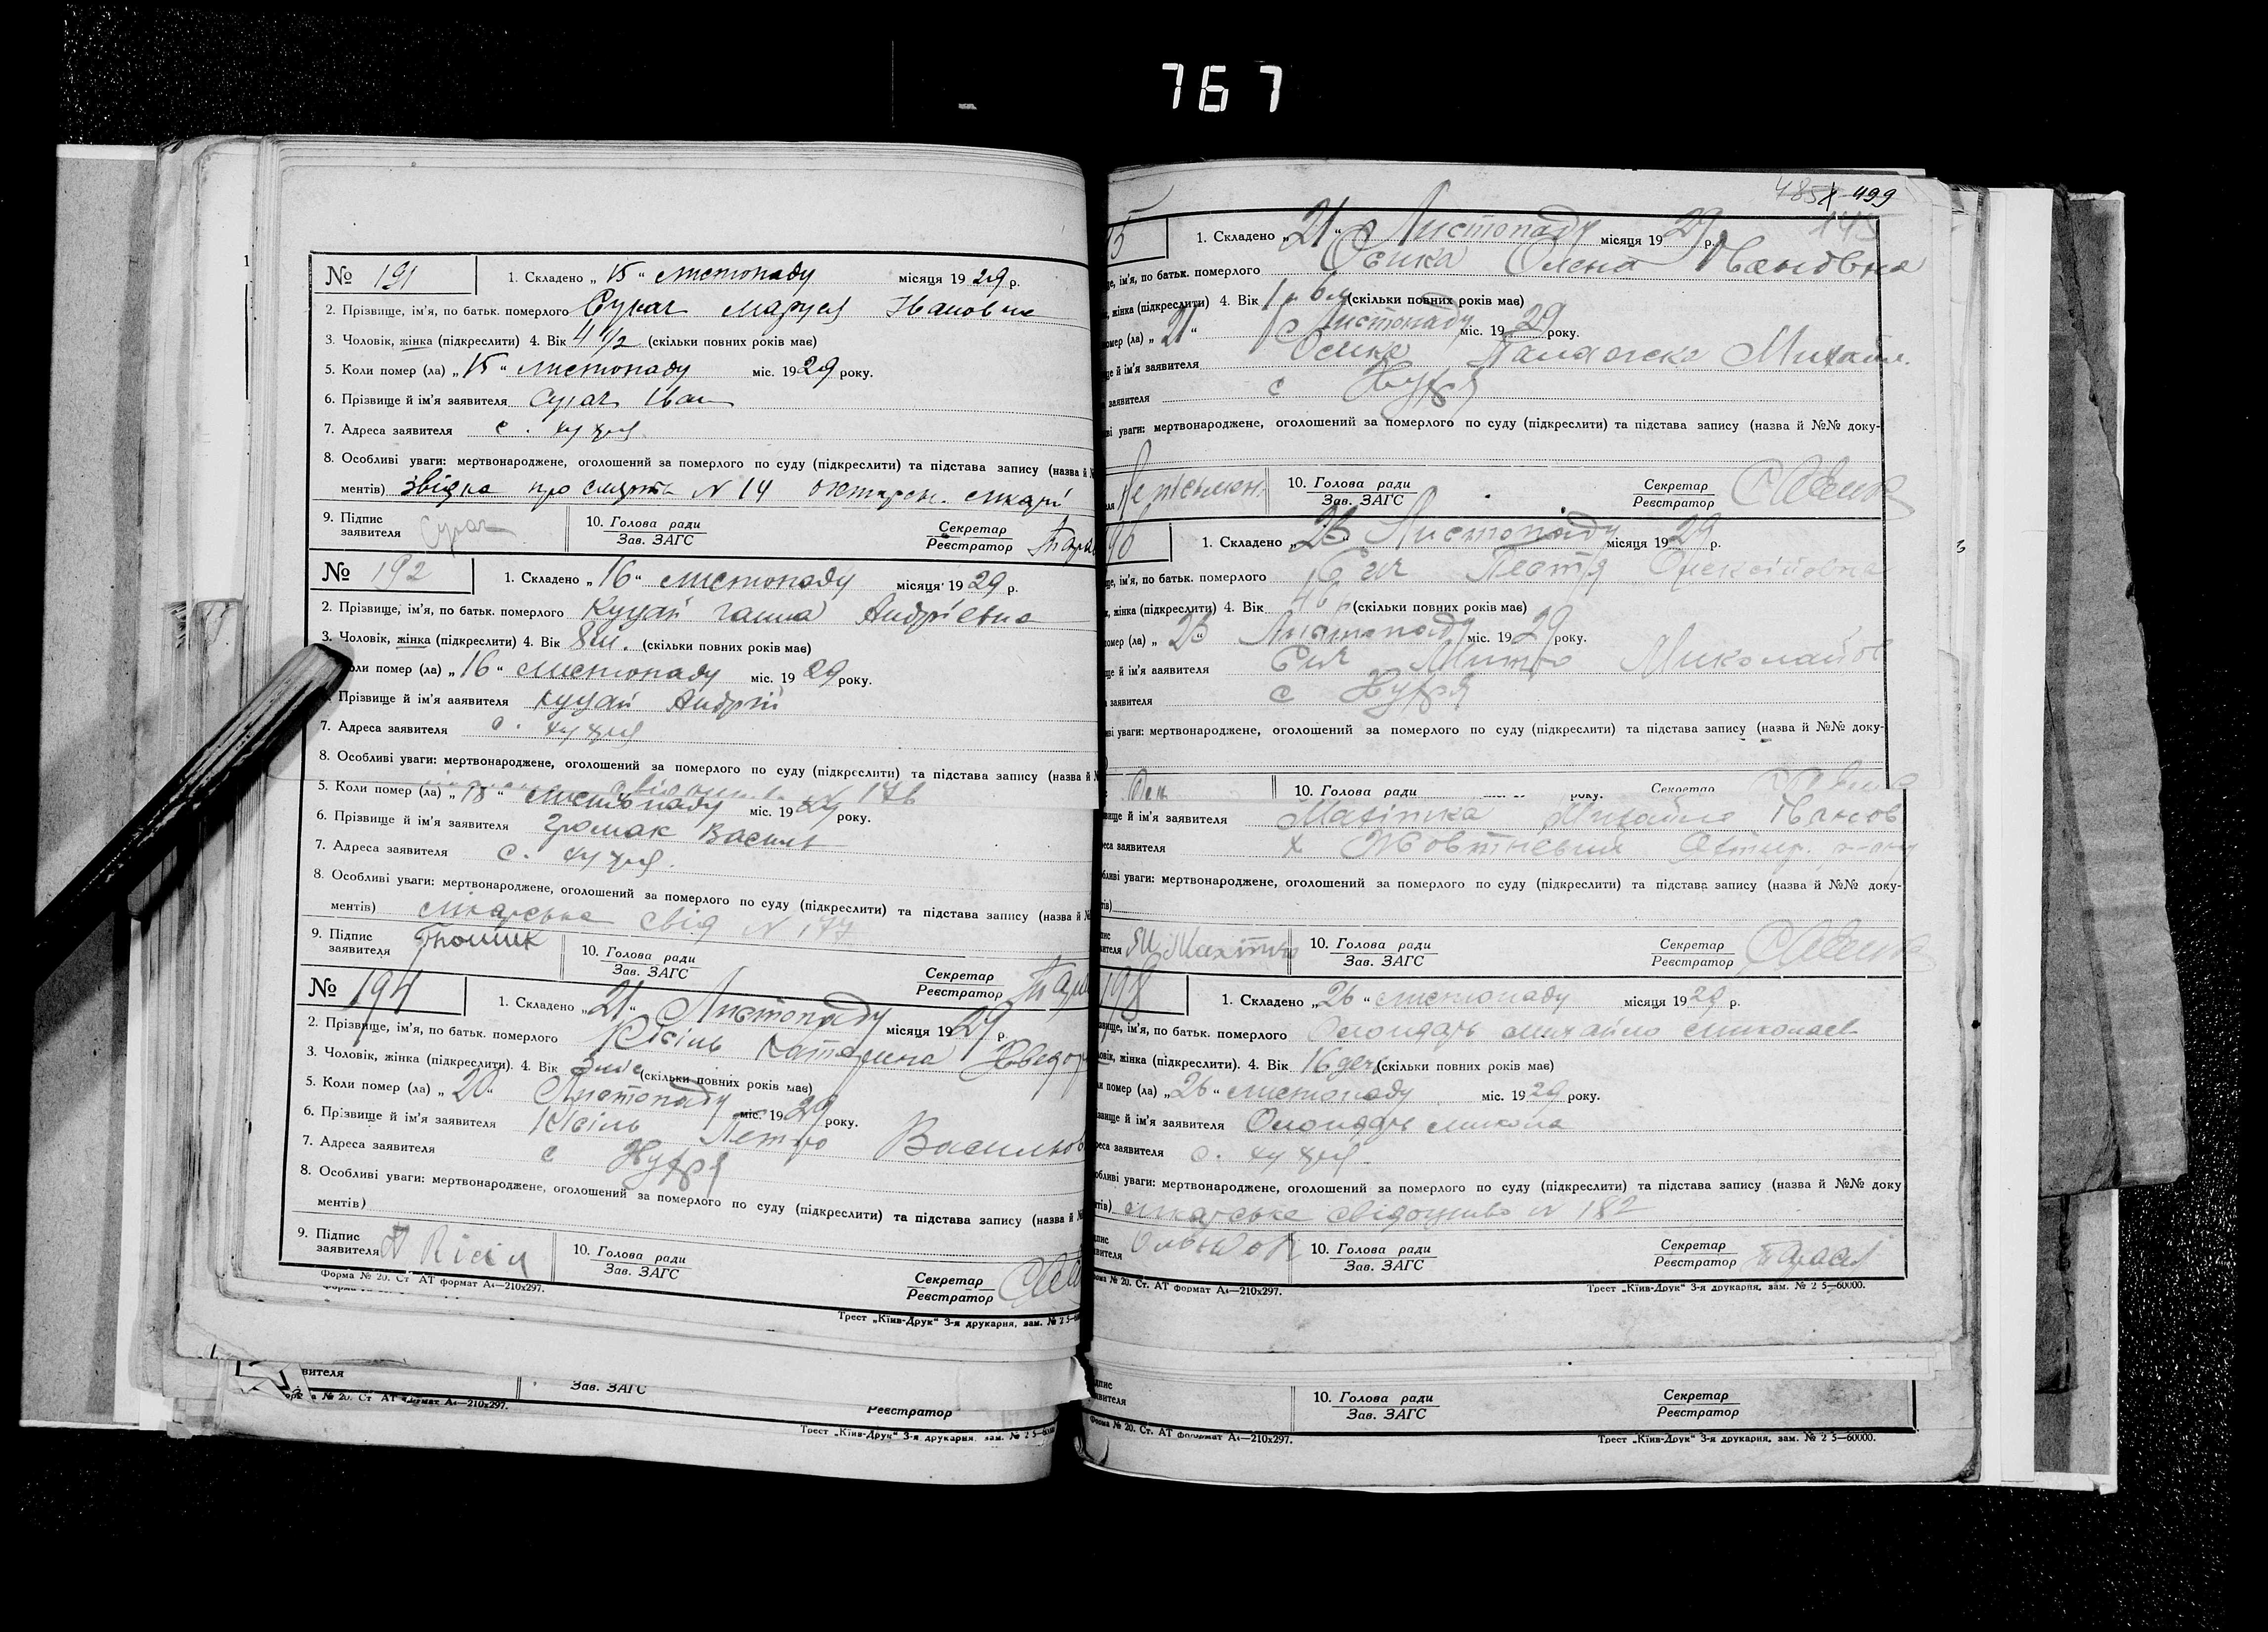 767
№ 191
1. Складено „ 15 “ листопаду місяця 19 29 р.
2. Прізвище, ім'я, по батьк. померлого Сукач Маруся Івановна
3. Чоловік, жінка (підкреслити) 4. Вік 4 1/2 (скільки повних років має)
5. Коли помер (ла) „ 15 “ листопаду міс. 19 29 року.
6. Прізвище й ім'я заявителя Сукач Іван
7. Адреса заявителя с.
8. Особливі уваги: мертвонароджене, оголошений за померлого по суду (підкреслити) та підстава запису (назва й №
ментів) звідка про смерть N 14
9. Підпис заявителя Сукач
10. Голова ради Зав. ЗАГС
Секретар Реєстратор
№ 192
1. Складено „ 16 “ листопаду місяця 19 29 р.
2. Прізвище, ім'я, по батьк. померлого Куцай Ганна Андрієвна
3. Чоловік, жінка (підкреслити) 4. Вік 8 м. (скільки повних років має)
оли помер (ла) „ 16 “ листопаду міс. 19 29 року.
Прізвище й ім'я заявителя Куцай Андрій
7. Адреса заявителя с.
8. Особливі уваги: мертвонароджене, оголошений за померлого по суду (підкреслити) та підстава запису (назва й №
176
5. Коли помер (ла) „ 18 “ листопаду міс. 19 29 року.
6. Прізвище й ім'я заявителя Громак Василь
7. Адреса заявителя с.
8. Особливі уваги: мертвонароджене, оголошений за померлого по суду (підкреслити) та підстава запису (назва й №
ментів) лікарське свід N 177
9. Підпис заявителя
10. Голова ради Зав. ЗАГС
Секретар Реєстратор
№ 194
1. Складено „ 21 “ Листопаду місяця 19 29 р.
2. Прізвище, ім'я, по батьк. померлого Кісіль Катерина
3. Чоловік, жінка (підкреслити). 4. Вік (скільки повних років має)
5. Коли помер (ла) „ 20 “ Листопаду міс. 19 29 року.
6. Прізвище й ім'я заявителя Кісіль Петро Васильов
7. Адреса заявителя с
8. Особливі уваги: мертвонароджене, оголошений за померлого по суду (підкреслити) та підстава запису (назва й №
ментів)
9. Підпис заявителя
10. Голова ради Зав. ЗАГС
Секретар Реєстратор
Форма № 20. Ст АТ формат А4—210x297.
Трест „Київ-Друк“ 3-я друкарня, зам. № 2 5—
вителя
Зав. ЗАГС
Реєстратор
№ 20. Ст АТ формат А4—210x297.
Трест „Київ-Друк“ 3-я друкарня, зам. № 2 5—60000
499
5
1. Складено „ 21 “ Листопаду місяця 19 29 р.
ще, ім'я, по батьк. померлого Осика Олена Івановна
жінка (підкреслити) 4. Вік 1 р 6 м (скільки повних років має)
омер (ла) „ 21 “ Листопаду міс. 19 29 року.
ще й ім'я заявителя Осика
заявителя с
ві уваги: мертвонароджене, оголошений за померлого по суду (підкреслити) та підстава запису (назва й №№ доку-
Неписьмен.
10. Голова ради Зав. ЗАГС
Секретар Реєстратор
96
1. Складено „ 26 “ Листопаду місяця 19 29 р.
ще, ім'я, по батьк. померлого
жінка (підкреслити) 4. Вік 46 р (скільки повних років має)
омер (ла) „ 25 “ Листопаду міс. 19 29 року.
ще й ім'я заявителя
заявителя с
ві уваги: мертвонароджене, оголошений за померлого по суду (підкреслити) та підстава запису (назва й №№ доку-
10. Голова ради року. Секретар
вище й ім'я заявителя Михайло Іванов
реса заявителя х
бливі уваги: мертвонароджене, оголошений за померлого по суду (підкреслити) та підстава запису (назва й №№ доку-
тів)
10. Голова ради Зав. ЗАГС
Секретар Реєстратор
198
1. Складено „ 26 “ листопаду місяця 19 29 р.
звище, ім'я, по батьк. померлого
ловік, жінка (підкреслити). 4. Вік 16 ден (скільки повних років має)
и помер (ла) „ 26 “ листопаду міс. 19 29 року.
звище й ім'я заявителя Микола
реса заявителя с.
обливі уваги: мертвонароджене, оголошений за померлого по суду (підкреслити) та підстава запису (назва й №№ доку
тів) лікарське свідоцтво N 182
10. Голова ради Зав. ЗАГС
Секретар Реєстратор
№ 20. Ст. АТ формат А4—210x297.
Трест „Київ-Друк“ 3-я друкарня, зам. № 2 5—60000.
10. Голова ради Зав. ЗАГС
Секретар Реєстратор
Форма № 20. Ст. АТ формат А4—210x297.
Трест „Київ-Друк“ 3-я друкарня, зам. № 2 5—60000.